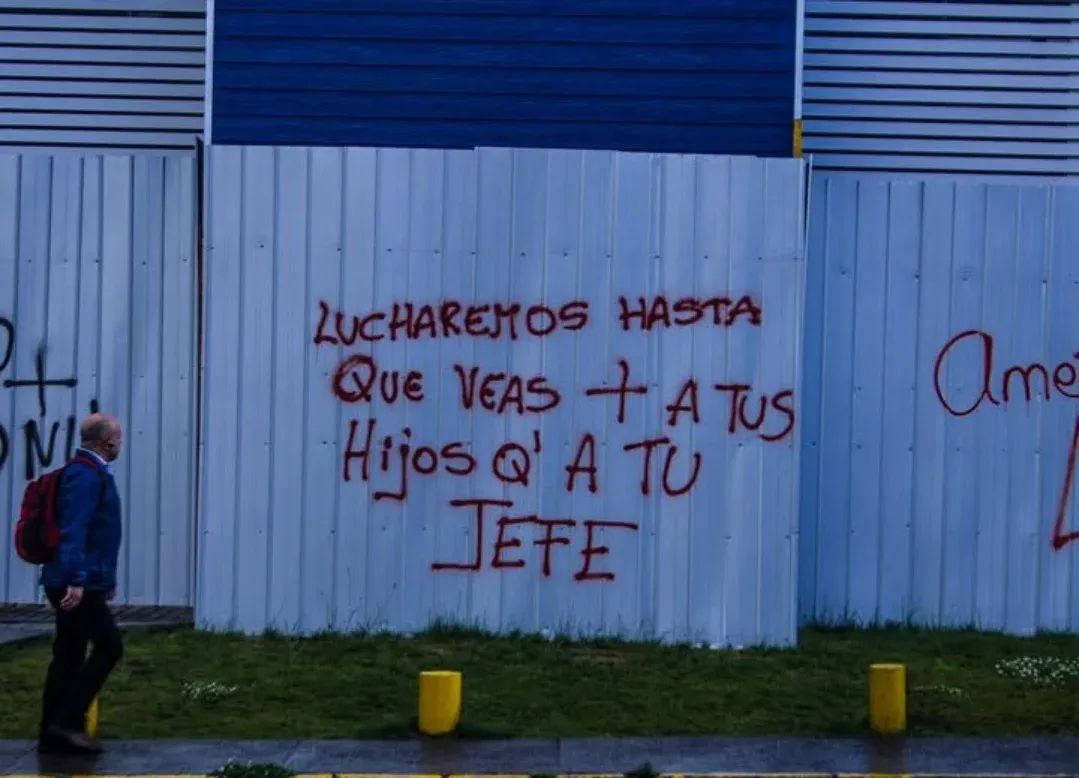 LUCHAREMOS HASTA
QUE VEAS + A TUS
Hijos Q' A TU
JEFE